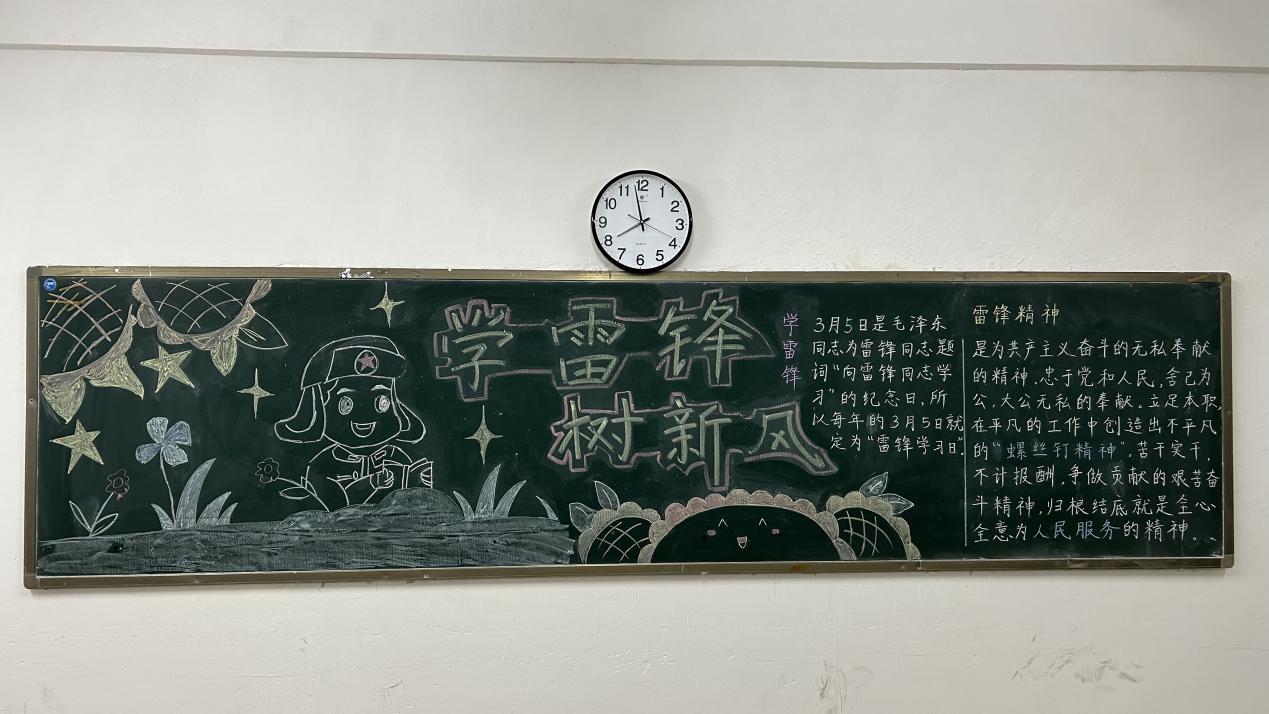 12
1
2
3
4
5
6
7
8
9
10
11
学雷锋
树新风
学雷锋
3月5日是毛泽东
同志为雷锋同志题
词“向雷锋同志学
习”的纪念日,所
以每年的3月5日就
定为“雷锋学习日”
雷锋精神
是为共产主义奋斗的无私奉献
的精神.忠于党和人民,舍己为
公,大公无私的奉献.立足本职,
在平凡的工作中创造出不平凡
的“螺丝钉精神”.苦干实干,
不计报酬,争做贡献的艰苦奋
斗精神,归根结底就是全心
全意为人民服务的精神。